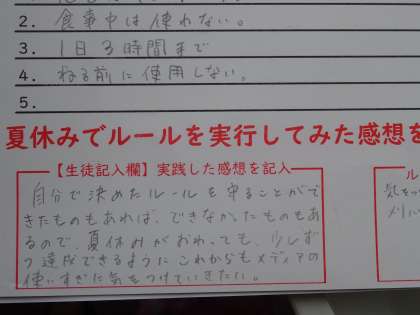 2. 食事中は使わない。
3. 1日3時間まで
4. ねる前に使用しない。
5.
夏休みでルールを実行してみた感想を
【生徒記入欄】実践した感想を記入
自分で決めたルールを守ることがで
きたものもあれば、できなかったものもあ
るので、夏休みがおわっても、少しず
つ達成できるようにこれからもメディアの
使いすぎに気をつけていきたい。
ル
気をつ
メリハ